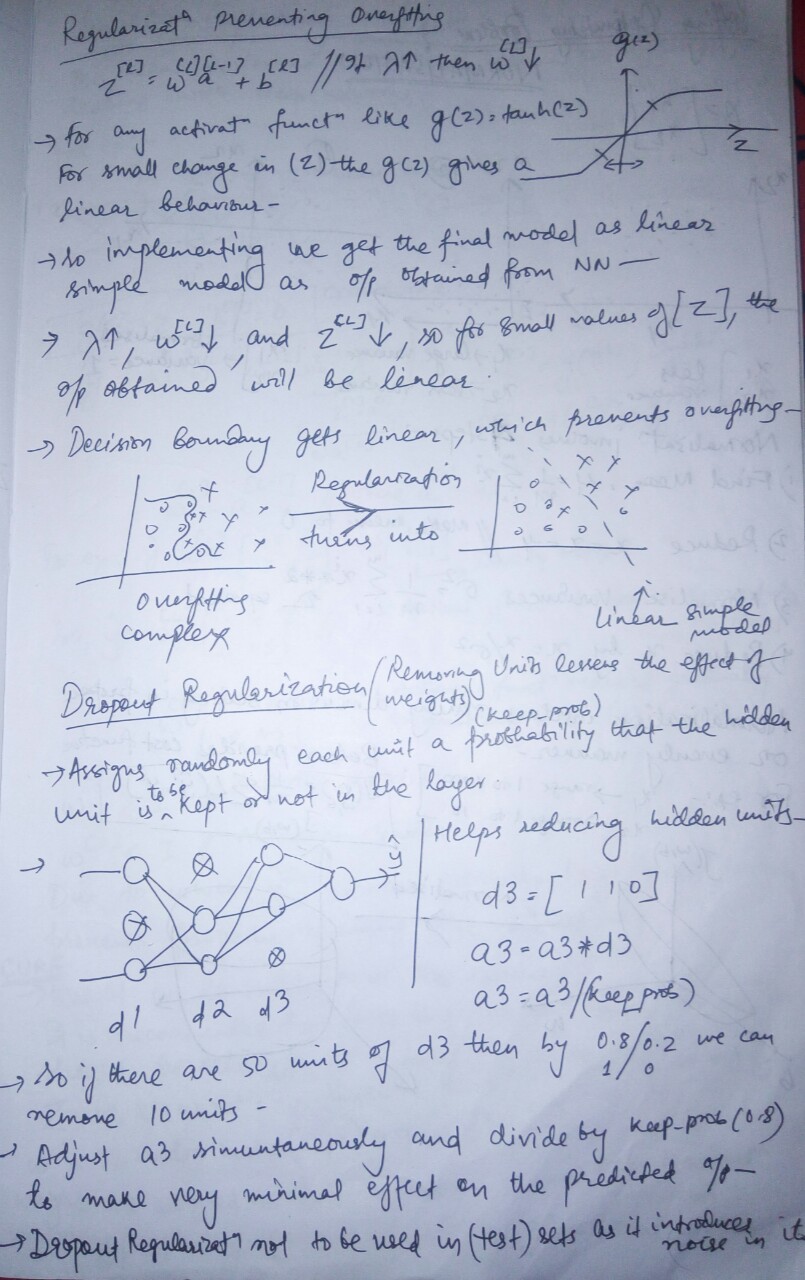 Regularizatⁿ preventing Overfitting
z^[l] = w^[l] a^[l-1] + b^[l] // If λ↑ then w^[l]↓
g(z)
→ For any activatⁿ functⁿ like g(z) = tanh(z)
Z
For small change in (Z) the g(z) gives a
linear behaviour -
→ So implementing we get the final model as linear
simple model as o/p obtained from NN —
→ λ↑, w^[L]↓, and z^[L]↓, so for small values of [Z], the
o/p obtained will be linear.
→ Decision Boundary gets linear, which prevents overfitting -
Regularization
turns into
overfitting
complex
linear simple
model
Dropout Regularization (Removing Units lessens the effect of
weights)
(keep-prob)
→ Assigns randomly each unit a probability that the hidden
unit is to be kept or not in the layer.
Helps reducing hidden units -
→
ŷ
d3 = [ 1 1 0 ]
a3 = a3 * d3
a3 = a3/(keep prob)
d1 d2 d3
→ So if there are 50 units of d3 then by 0.8/0.2 we can
1/0
remove 10 units -
→ Adjust a3 simuntaneously and divide by keep-prob (0.8)
to make very minimal effect on the predicted o/p —
→ Dropout Regularizatⁿ not to be used in (test) sets as it introduces
noise in it